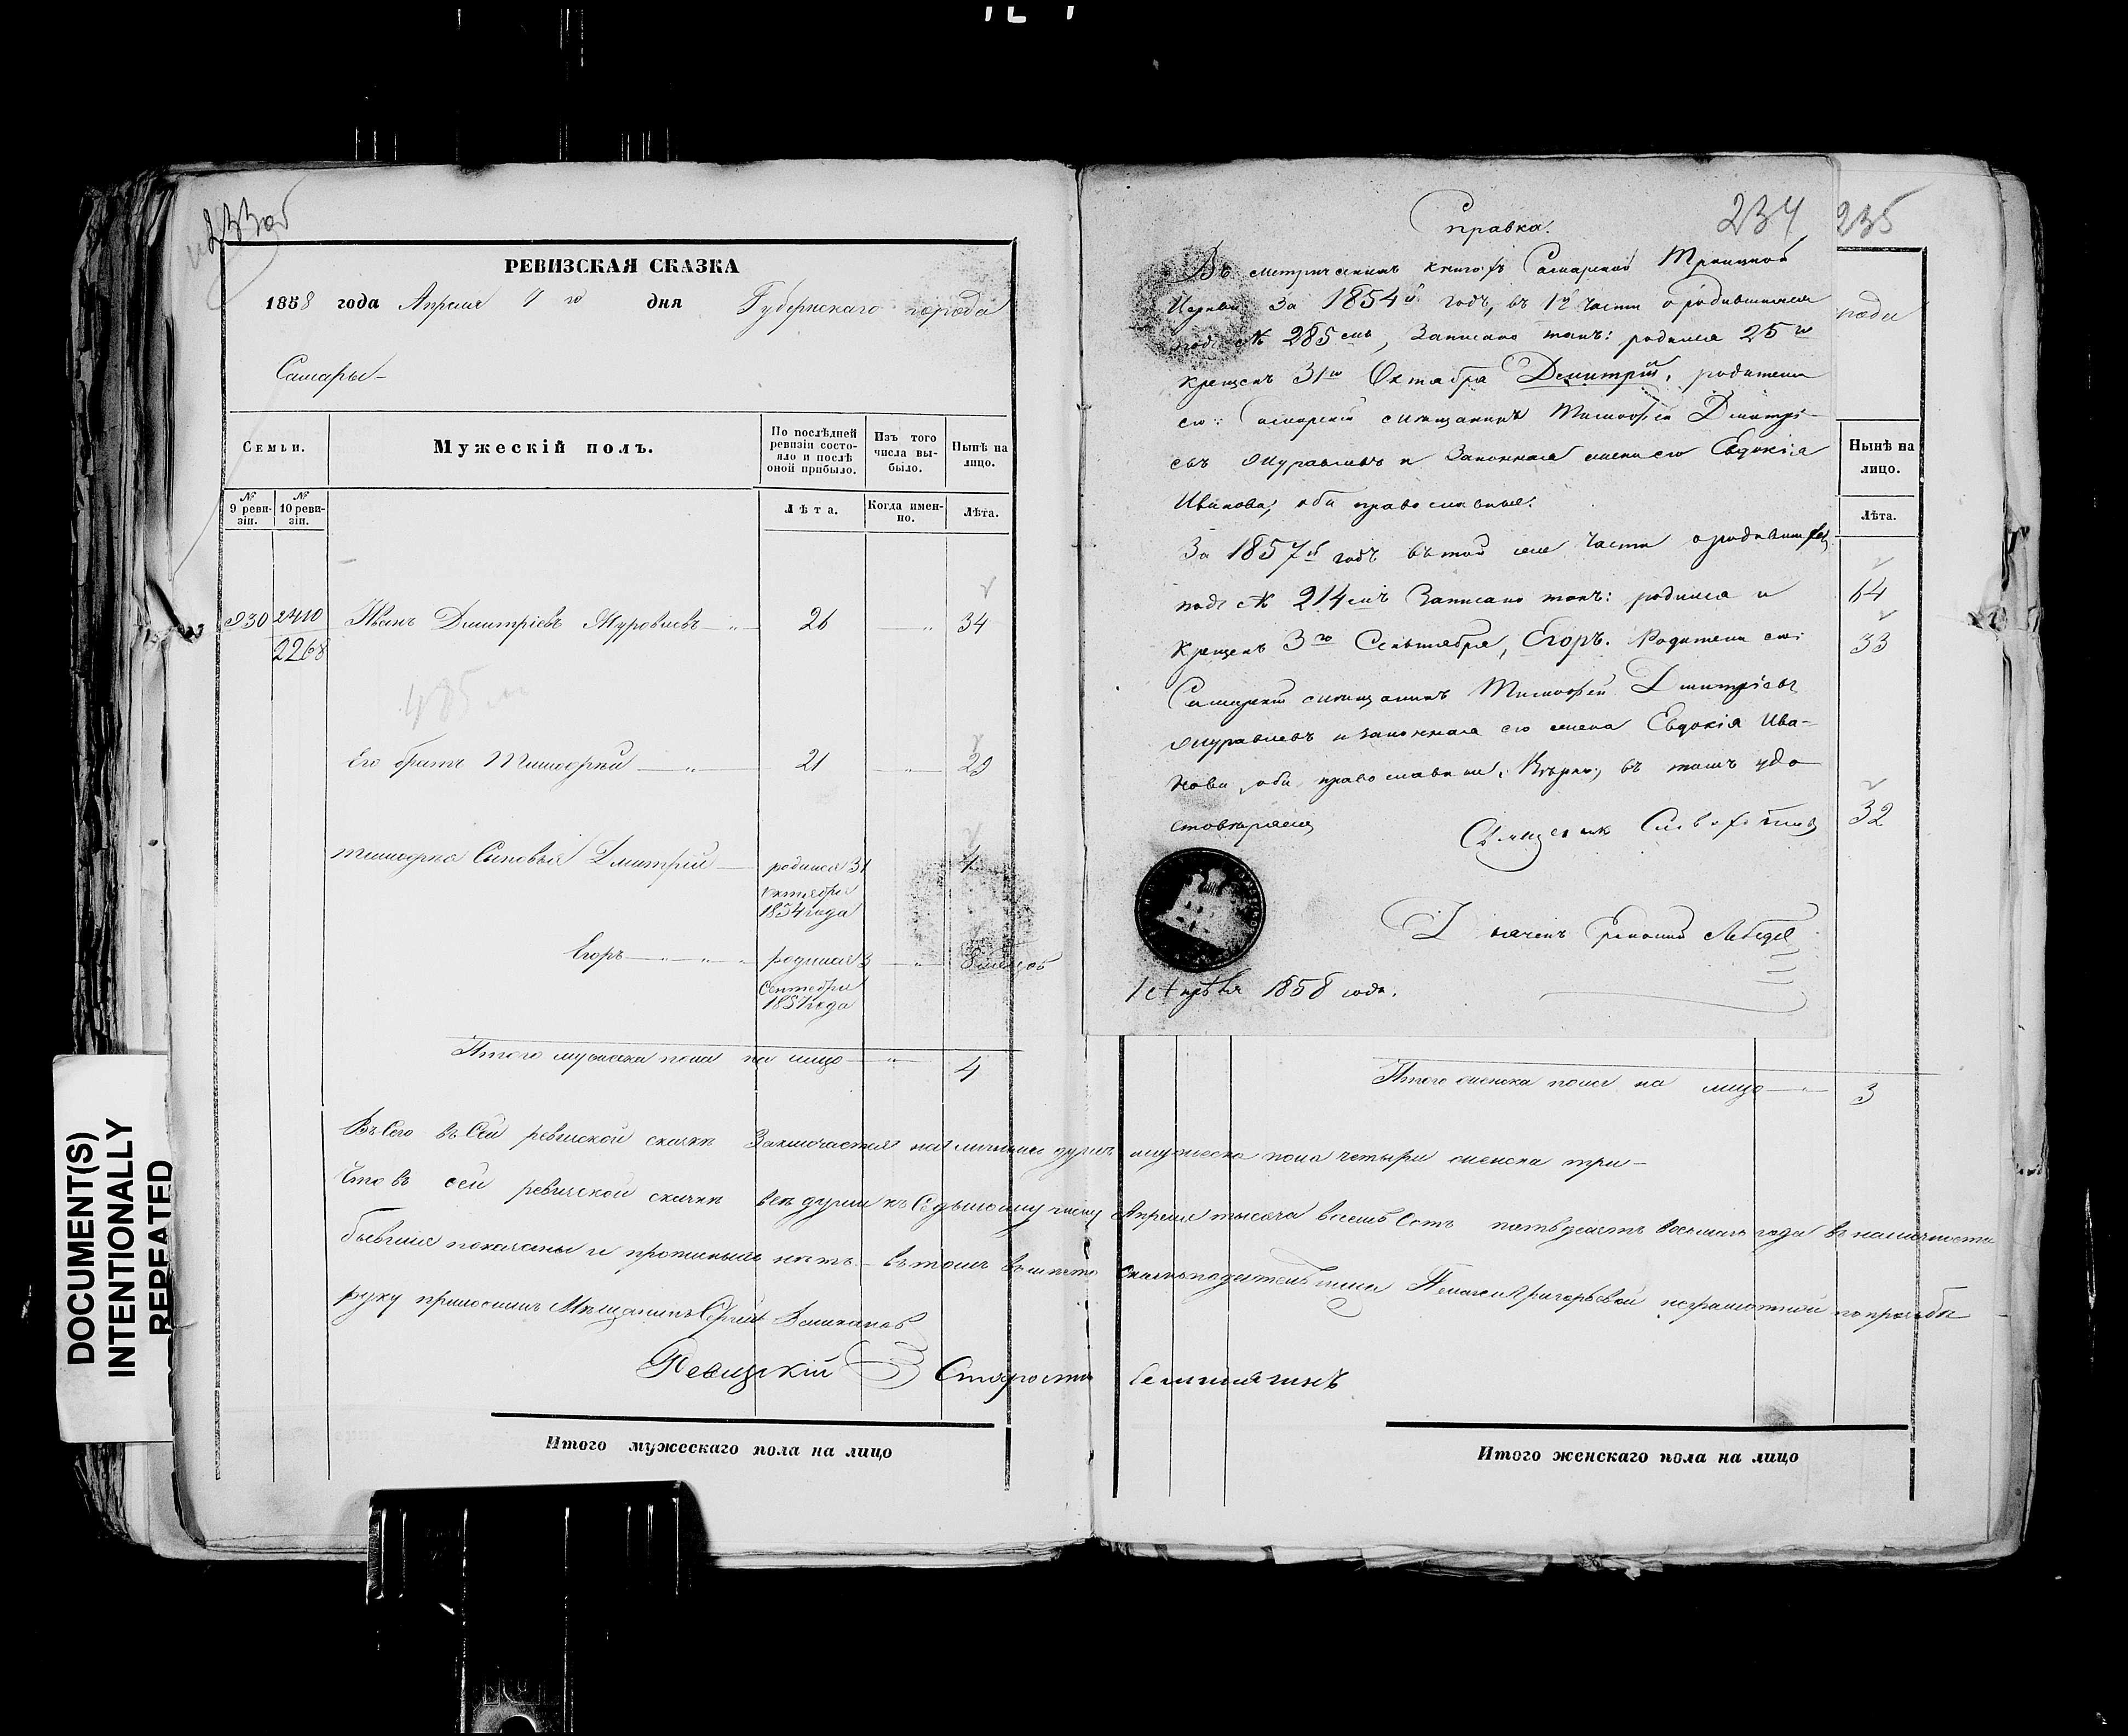 233об
РЕВИЗСКАЯ СКАЗКА
1858 года Апреля 7го дня Губернскаго города
Самары
Семьи.
Мужескій полъ.
По послѣдней ревизіи состояло и послѣ оной прибыло.
Изъ того числа выбыло.
Нынѣ на лицо.
№ 9 ревизіи.
№ 10 ревизіи.
Лѣта.
Когда именно.
Лѣта.
930 2410 Иванъ Дмитріевъ Журавлевъ 26 34
2268
Его братъ Тимофей 21 29
Тимофея Сыновья Дмитрій родился 31 октября 1854 года 4
Егоръ родился 3 Сентября 1857 года
Итого мужеска пола на лицо 4
Въ Сей ревизской сказке Заключается мужеска пола четыре женска три
Что въ сей ревизской сказке все души къ Седьмому числу Апреля тысяча восемь Сотъ пятьдесятъ восьмаго года въ наличности
бывшия показаны и прописныхъ нетъ въ томъ вместо Сказкоподательницы Пелагеи Григорьевой неграмотной по прозьбе
руку приложилъ Мещанинъ
Староста
Итого мужескаго пола на лицо
234
Справка.
Въ метрическихъ книгахъ Самарской Троицкой
Церкви за 1854й годъ, въ 1й части о родившихся
подъ № 285мъ, Записано такъ: родился 25го
крещенъ 31го Октября Дмитрій, родители
его: Самарскій мѣщанинъ Тимофей Дмитрі-
евъ Журавлевъ и Законная жена его Евдокія
Иванова, оба православные.
За 1857й годъ въ той же части о родившихся
подъ № 214мъ Записано такъ: родился и
крещенъ 3го Сентября, Егоръ. Родители его:
Самарскій мѣщанинъ Тимофей Дмитріевъ
Журавлевъ и законная его жена Евдокія Ива-
нова, оба православные. Вѣрно, въ томъ удо-
стовѣряемъ
Священник
Дьяченъ Лебедев
1 Апреля 1858 года.
235
города
Нынѣ на лицо.
Лѣта.
64
33
32
Итого женска пола на лицо 3
Итого женскаго пола на лицо
DOCUMENT(S)
INTENTIONALLY
REPEATED